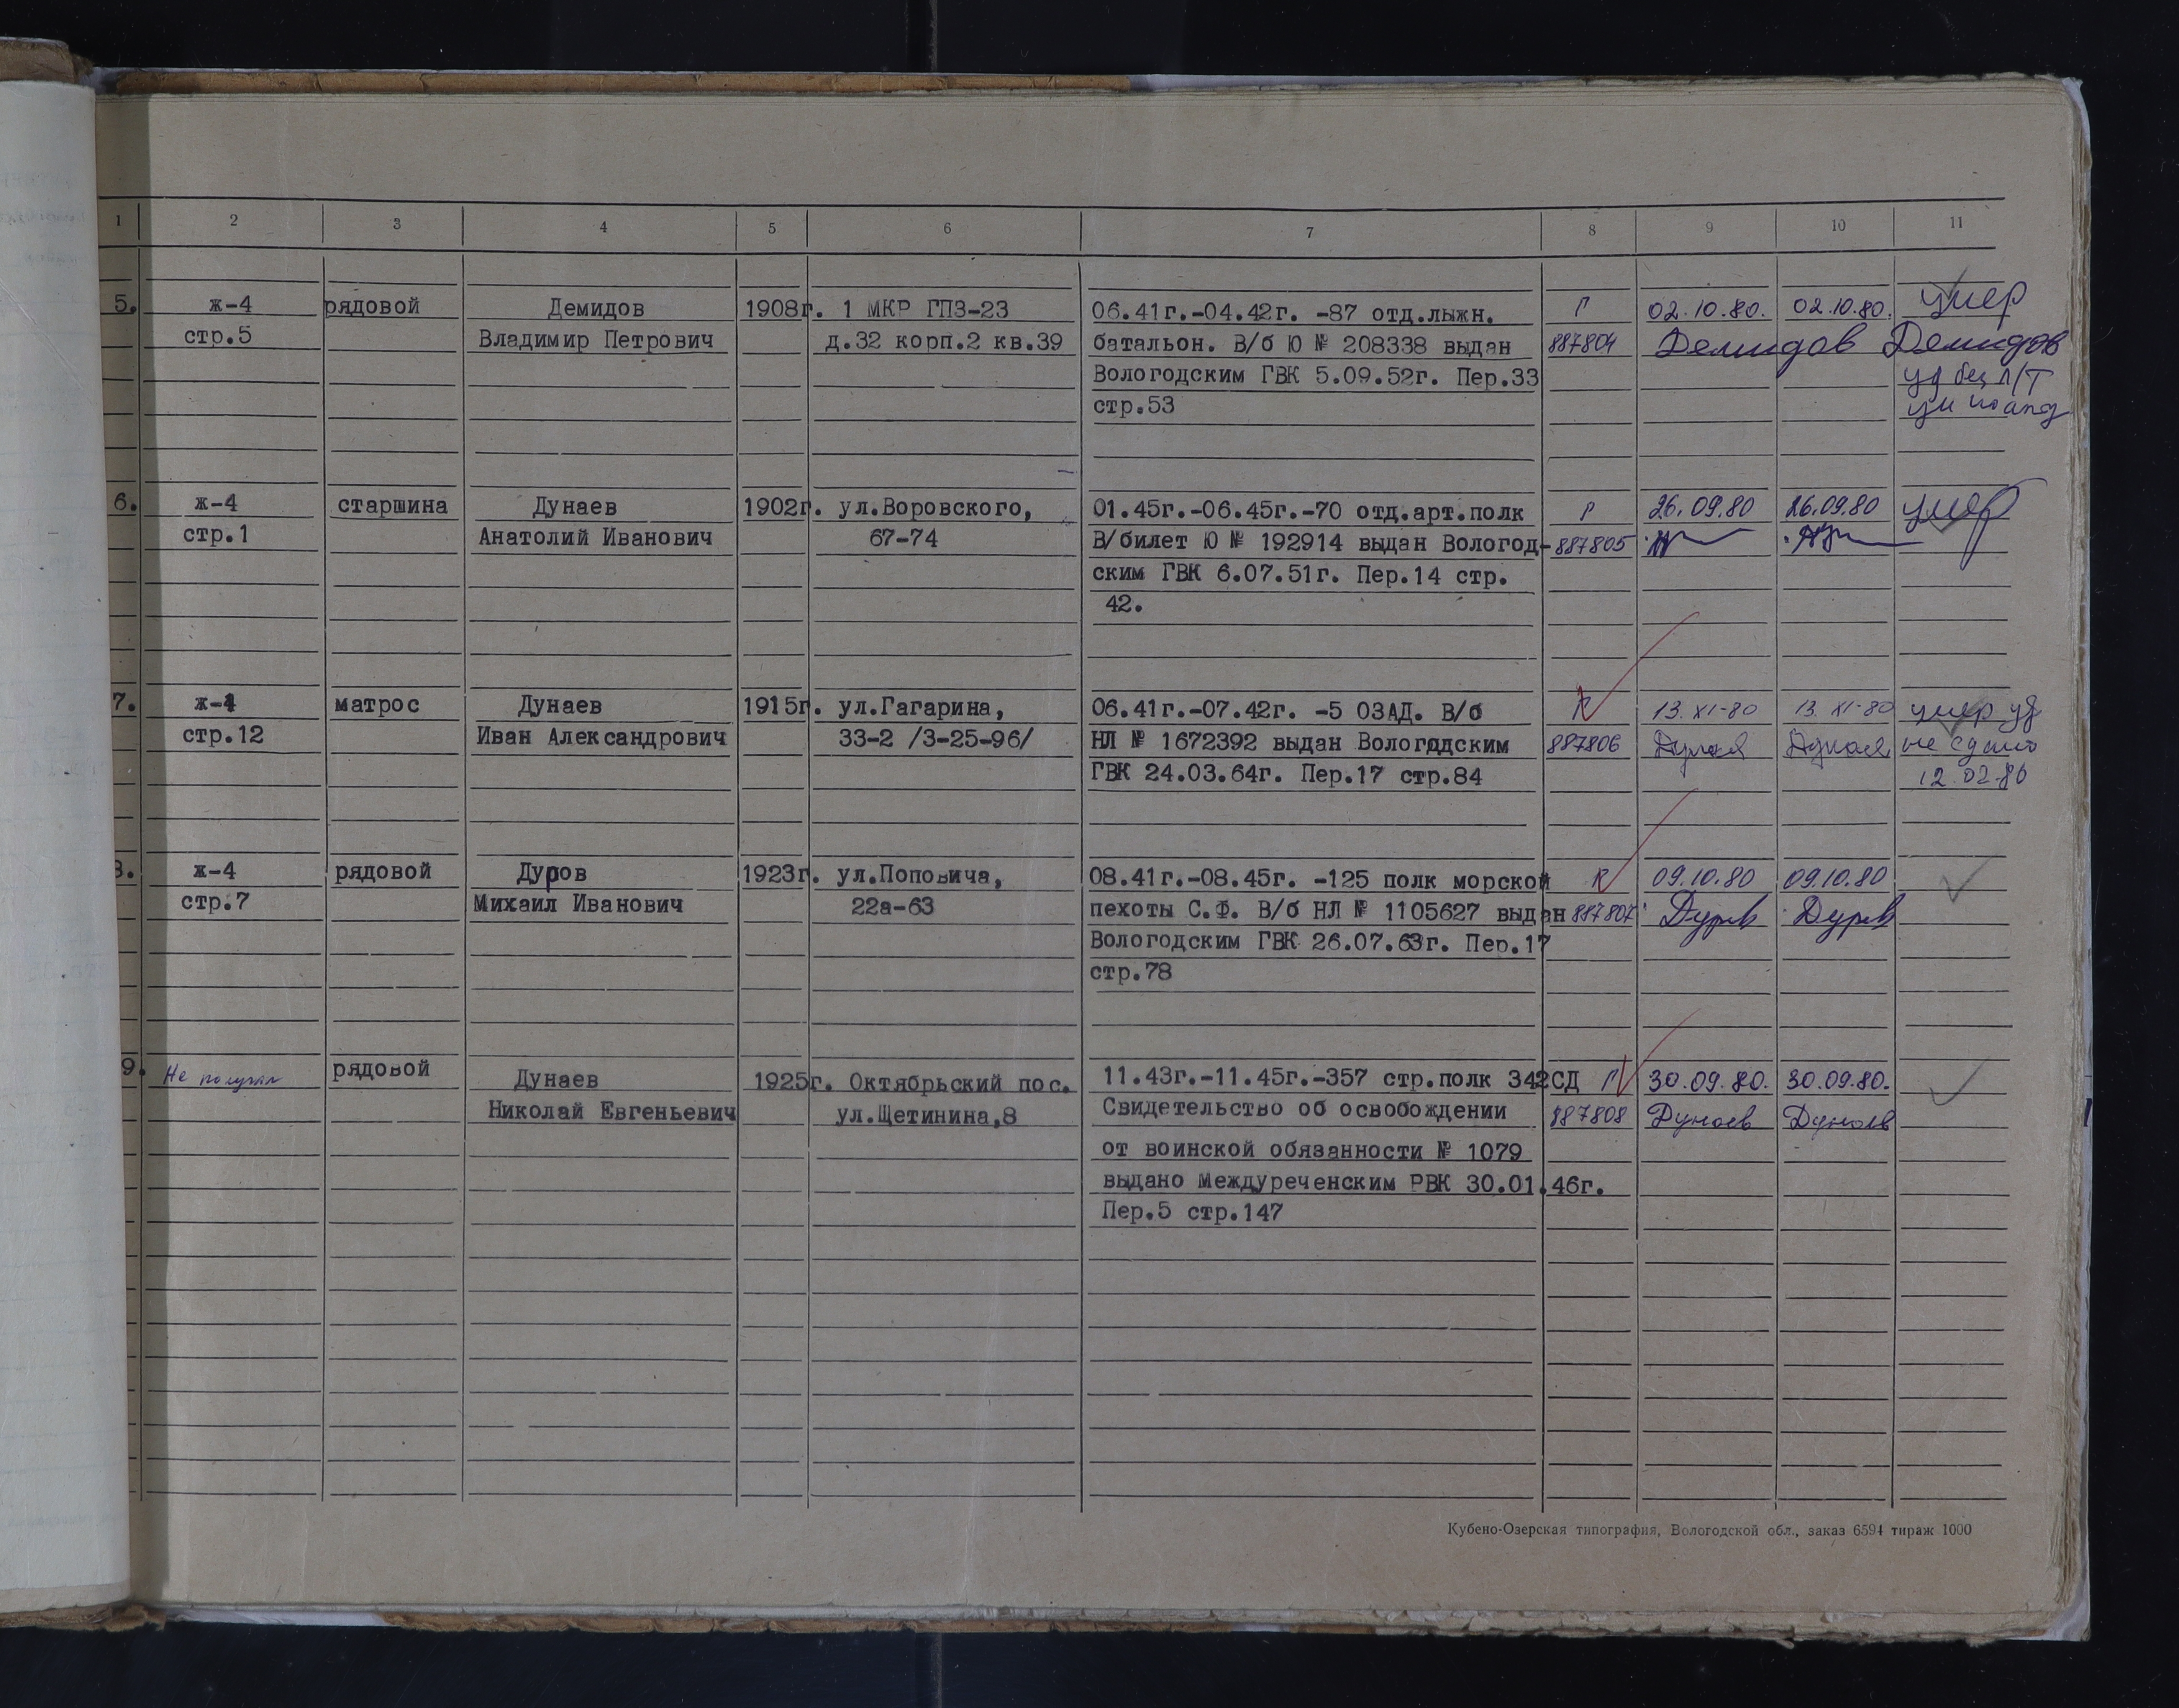 1 2 3 4 5 6 7 8 9 10 11
5. ж-4 рядовой Демидов 1908г. 1 МКР ГПЗ-23 06.41г.-04.42г. -87 отд.лыжн. Р 02.10.80. 02.10.80. умер
стр.5 Владимир Петрович д.32 корп.2 кв.39 батальон. В/б Ю № 208338 выдан 887804 Демидов Демидов
Вологодским ГВК 5.09.52г. Пер.33 уд без Л/Т
стр.53
6. ж-4 старшина Дунаев 1902г. ул.Воровского, 01.45г.-06.45г.-70 отд.арт.полк Р 26.09.80 26.09.80 умер
стр.1 Анатолий Иванович 67-74 В/билет Ю № 192914 выдан Вологод- 887805
ским ГВК 6.07.51г. Пер.14 стр.
42.
7. ж-4 матрос Дунаев 1915г. ул.Гагарина, 06.41г.-07.42г. -5 ОЗАД. В/б 13.XI-80 13.XI-80 умер уд
стр.12 Иван Александрович 33-2 /3-25-96/ НЛ № 1672392 выдан Вологодским 887806 не сдано
ГВК 24.03.64г. Пер.17 стр.84 12.02.86
8. ж-4 рядовой Дуров 1923г. ул.Поповича, 08.41г.-08.45г. -125 полк морской 09.10.80 09.10.80
стр.7 Михаил Иванович 22а-63 пехоты С.Ф. В/б НЛ № 1105627 выдан 887807 Дуров Дуров
Вологодским ГВК 26.07.63г. Пер.17
стр.78
9. Не получал рядовой Дунаев 1925г. Октябрьский пос. 11.43г.-11.45г.-357 стр.полк 342СД Р 30.09.80. 30.09.80.
Николай Евгеньевич ул.Щетинина,8 Свидетельство об освобождении 887808 Дунаев Дунаев
от воинской обязанности № 1079
выдано Междуреченским РВК 30.01.46г.
Пер.5 стр.147
Кубено-Озерская типография, Вологодской обл., заказ 6594 тираж 1000